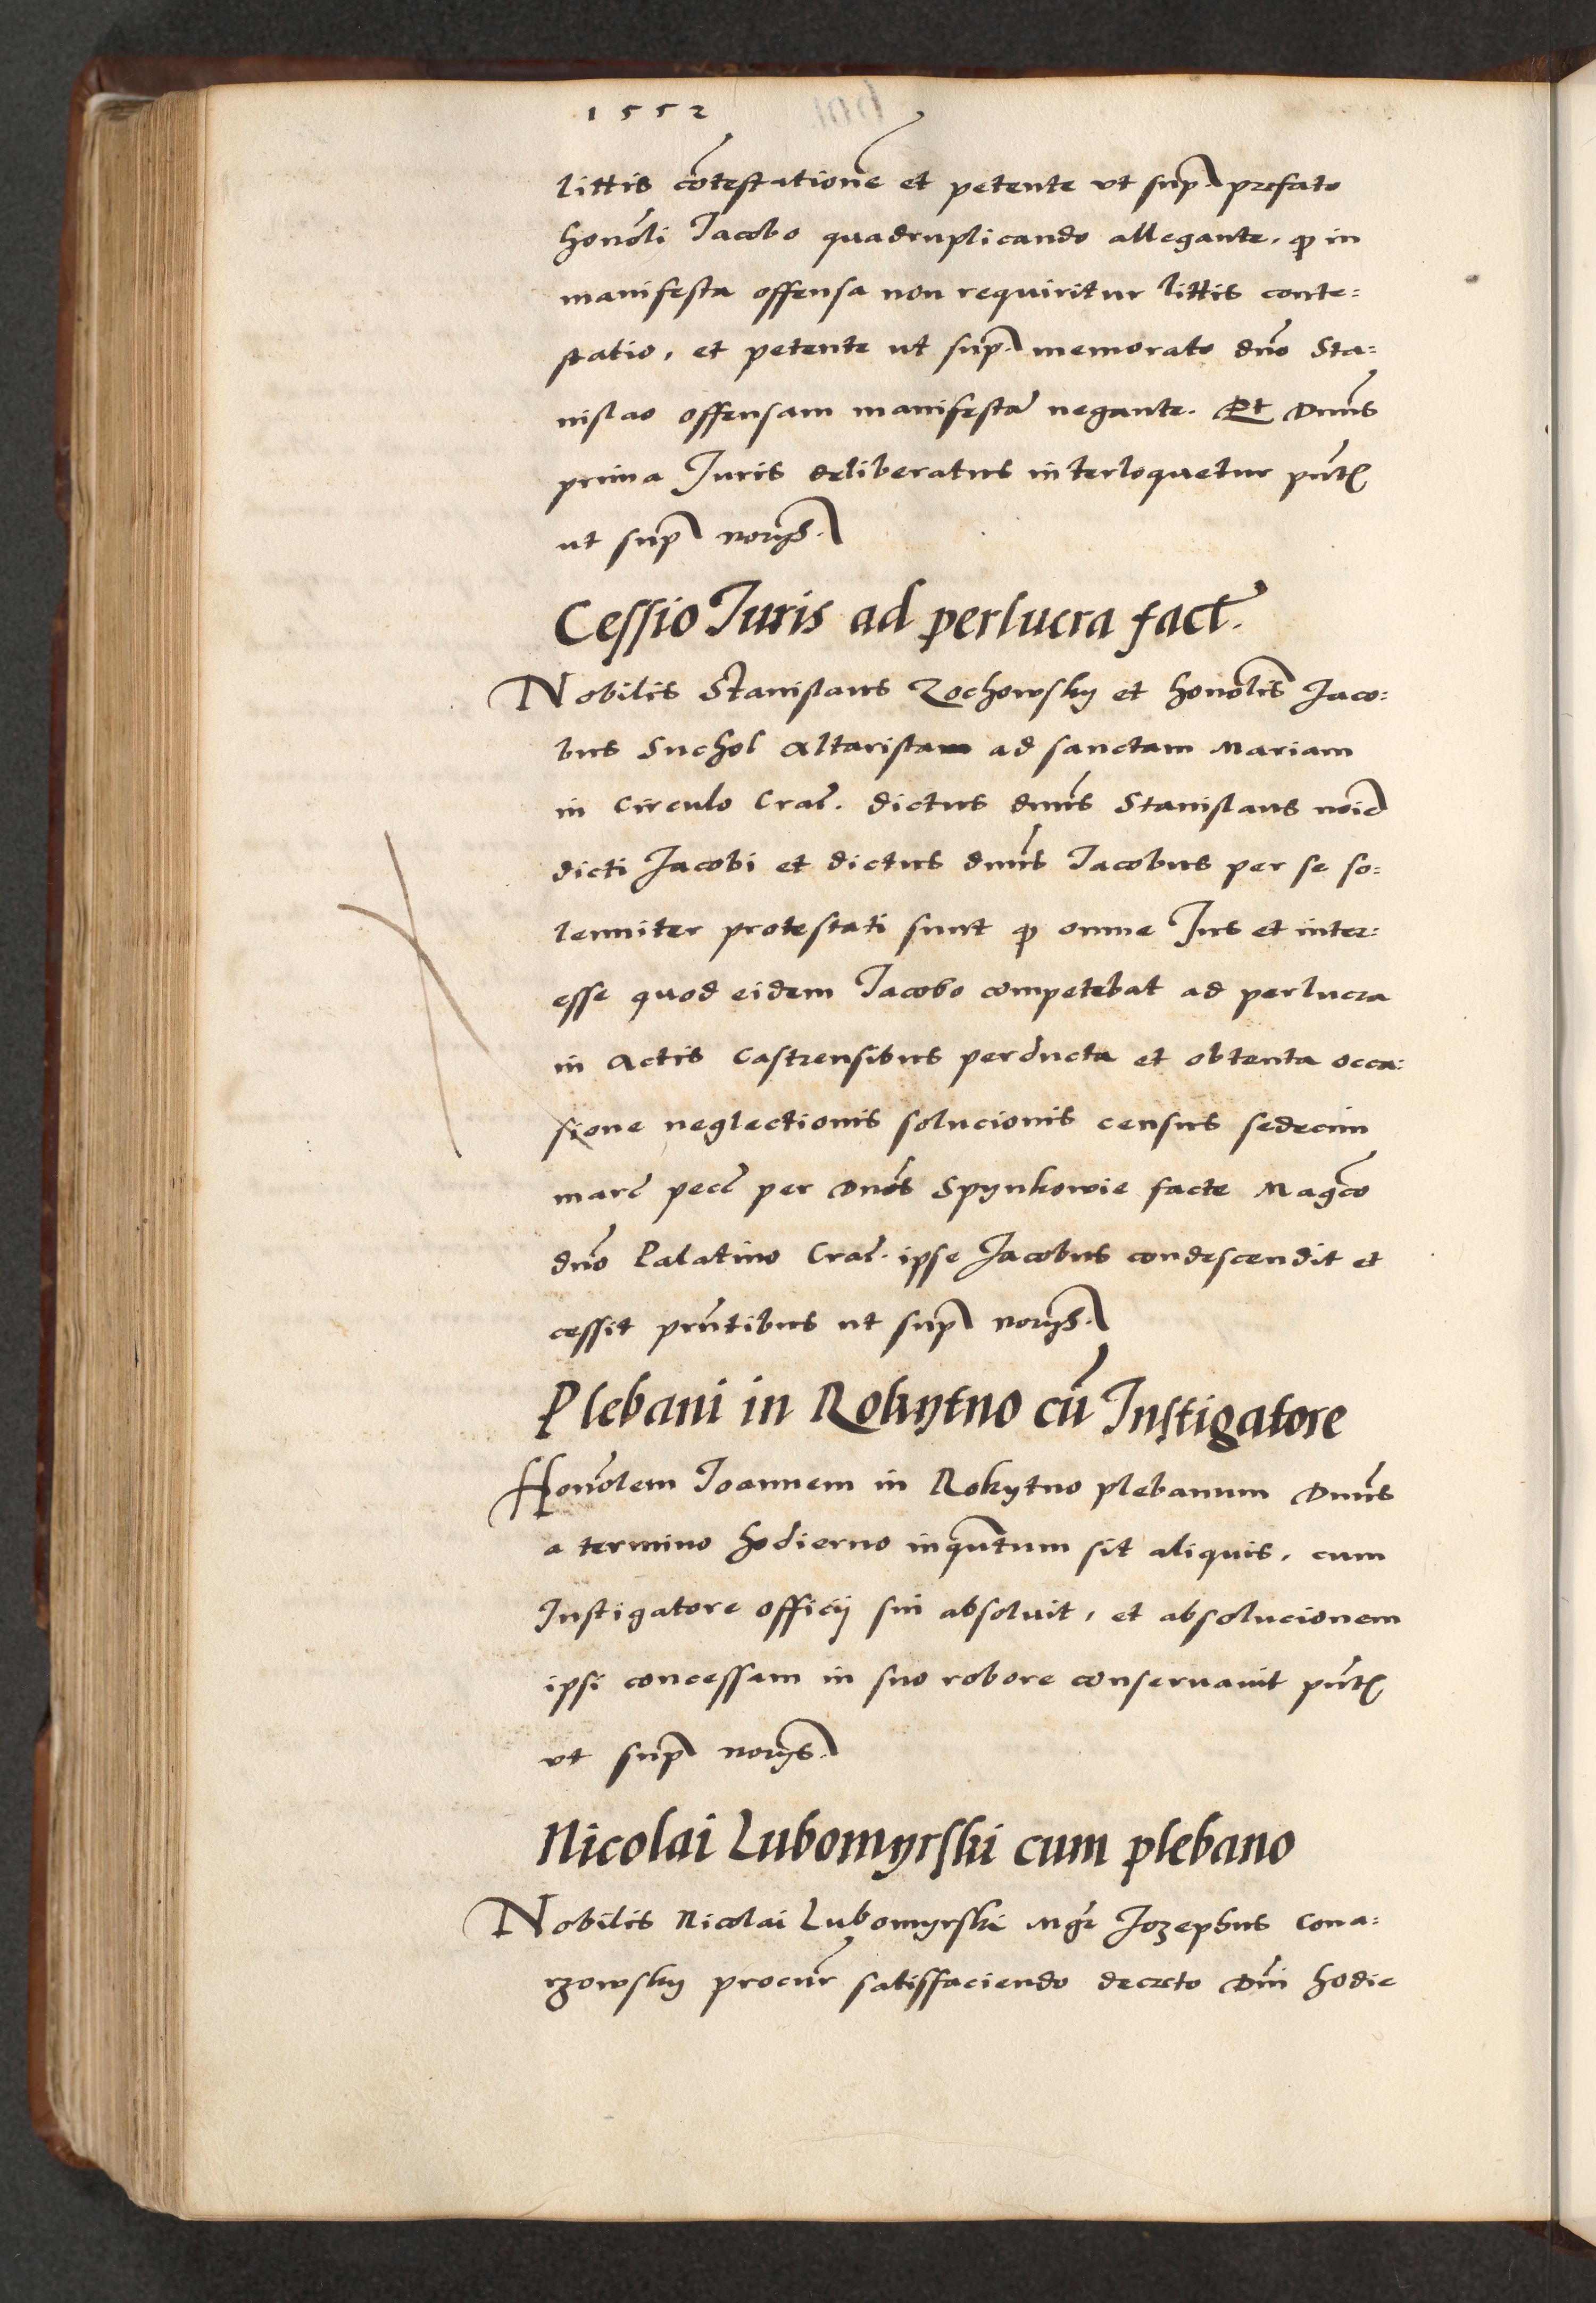 1552
littis cōtestationē et petente vt sup. prefato
honōli Jacobo quadruplicando allegante, ꝙ in
manifesta offensa non requiritur littis conte=
statio, et petente ut sup. memorato dn̄o Sta=
nislao offensam manifestā negante. Et Dnūs
prima Juris deliberaturus interloquetur pn̄t
ut sup notīs.
Cessio Juris ad perlucra fact.
Nobilis Stanislaus Zochowsky et honōlis Jaco=
bus Suchol Altarista ad sanctam Mariam
in Circulo Crac̄. dictus dnūs Stanislaus noīe
dicti Jacobi et dictus dnūs Jacobus per se so=
lenniter protestati sunt ꝙ omne Jus et inter=
esse quod eidem Jacobo competebat ad perlucra
in Actis Castrensibus perducta et obtenta occa=
sione neglectionis solucionis census sedecim
marc̄ pecc̄ per Dnōs Spynkowie facte Magc̄o
dn̄o Palatino Crac̄. ipse Jacobus condescendit et
cessit prn̄tibus ut sup
Plebani in Rokytno cū Instigatore
Honōlem Joannem in Rokytno plebanum Dnūs
a termino hodierno inqūtum sit aliquis, cum
Instigatore officij sui absoluit, et absolucionem
ipsi concessam in suo robore conseruauit pn̄t
vt sup
Nicolai Lubomyrski cum plebano
Nobilis Nicolai Lubomyrski Mgr̄ Jozephus Cona=
rzowsky procur̄ satisfaciendo decreto Dn̄i hodie